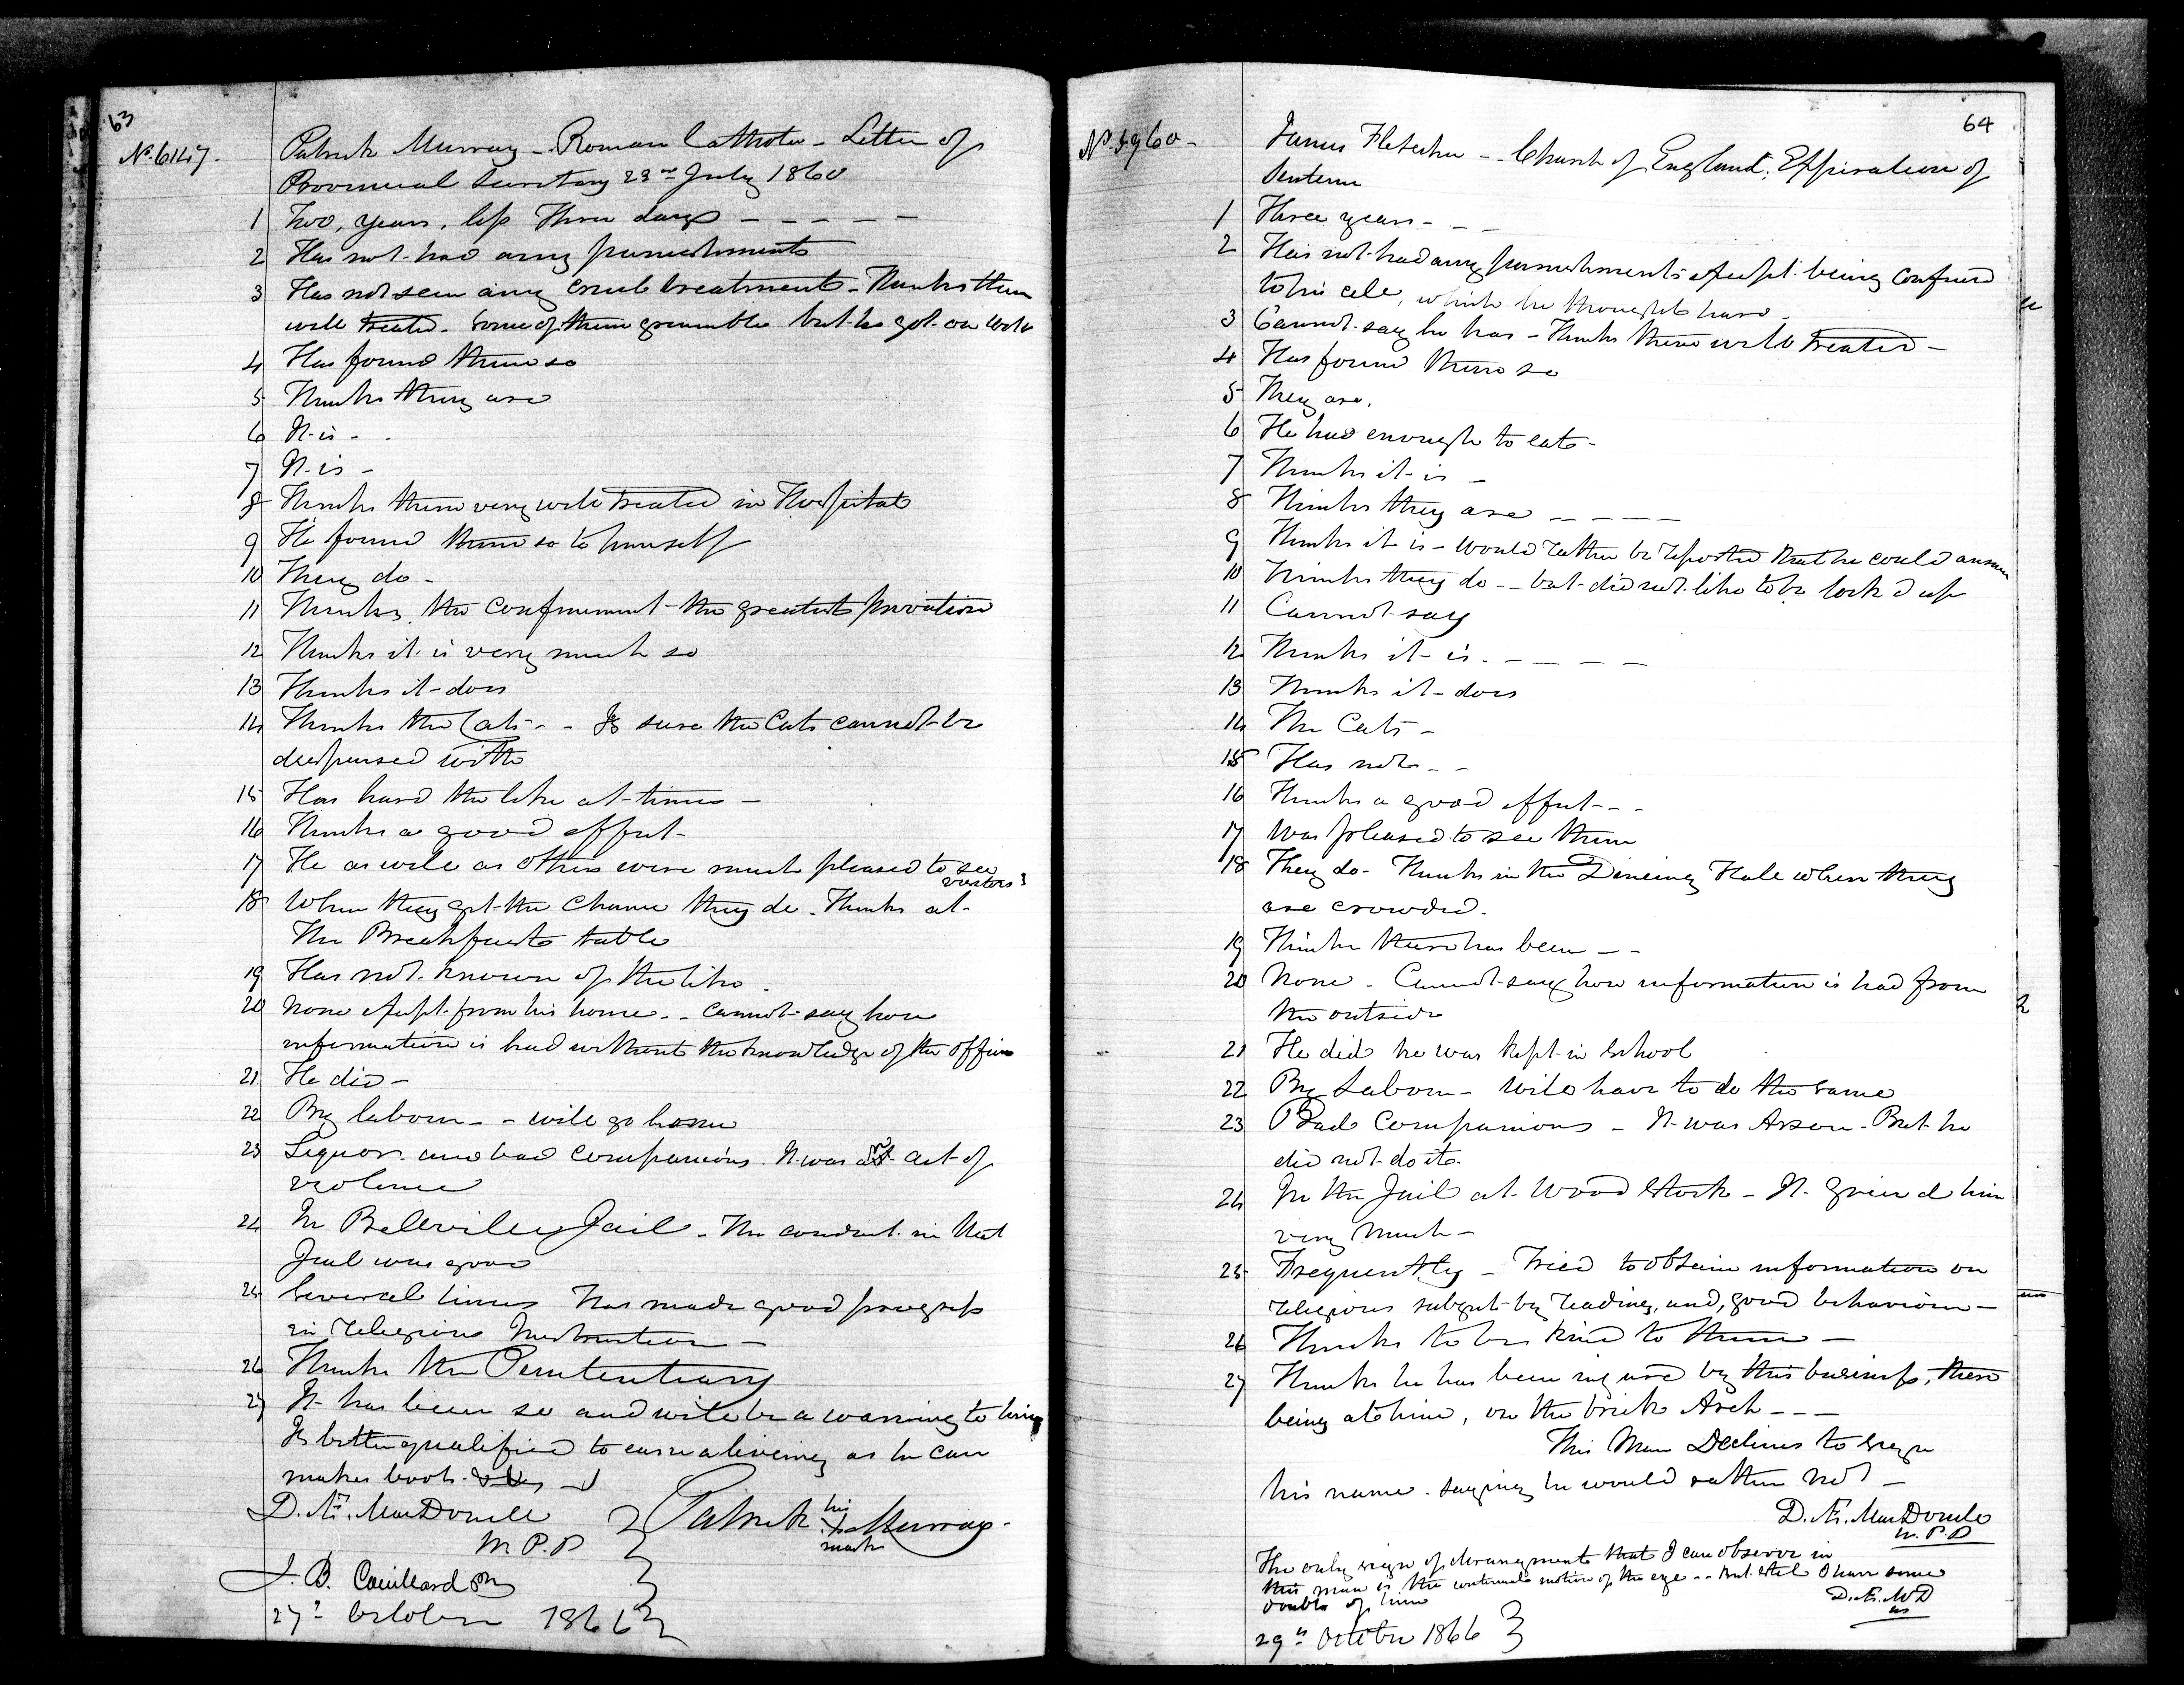 63
No. 6147.
Patrick Murray - Roman Catholic - Letter of
Provincial Secretary 23rd July 1860
1 Two, years, less Three days - - - - -
2 Has not had any punishments
3 Has not seen any cruel treatment - Thinks them
well treated. Some of them grumble but he got on well
4 Has found them so
5 Thinks they are
6 It is - .
7 It is -
8 Thinks them very well treated in Hospital
9 He found them so to himself
10 They do -
11 Thinks, the confinement the greatest privation
12 Thinks it is very much so
13 Thinks it does
14 Thinks the Cats - - Is sure the Cats cannot be
dispensed with
15 Has heard the like at times -
16 Thinks a good effect -
17 He as well as others were much pleased to see
visitors
18 When they get the chance they do. Thinks at
The Breakfast table
19 Has not known of the like.
20 None except from his home - - Cannot say how
information is had without the knowledge of the officers
21 He did -
22 By labour - - will go home
23 Liquor and bad companions. It was act of
violence
24 In Belleville Jail - The conduct in that
Jail was good
25 Several times Has made good progress
in religious Instruction -
26 Thinks the Penitentiary
27 It has been so and will be a warning to him
Is better qualified to earn a living as he can
make boots.
D. Æ. MacDonell
M.P.P
Patrick his X mark Murray -
J. B.
27th October 1866
64
No. 5960 -
James Fletcher - - Church of England, Expiration of
Sentence
1 Three years - - -
2 Has not had any punishments except being confined
to his cell, which he thought hard -
3 Cannot say he has - Thinks them well treated -
4 Has found them so
5 They are.
6 He had enough to eat -
7 Thinks it is -
8 Thinks they are - - - - -
9 Thinks it is - would rather be reported that he could answer
10 Thinks they do - - but did not like to be lock'd up
11 Cannot say
12 Thinks it is. - - - -
13 Thinks it does
14 The Cats -
15 Has not - -
16 Thinks a good effect - - -
17 Was pleased to see them
18 They do - Thinks in the Dineing Hall when they
are crowded.
19 Thinks there has been - -
20 None - Cannot say how information is had from
the outside
21 He did he was kept in School
22 By Labour - will have to do the same
23 Bad Companions - It was Arson - But he
did not do it -
24 In the Jail at Wood Stock - It griev'd him
very much -
25 Frequently - Tried to obtain information on
religious subject by reading, and, good behaviour -
26 Thinks to be kind to them -
27 Thinks he has been injured by this business, there
being at time, on the brick Arch - - -
This Man Declines to sign
his name. saying he would rather not -
D. Æ. MacDonell
M.P.P
The only sign of derangement that I can observe in
this man is the continual motion of the eye - - But still I have some
doubts of him
D. Æ. McD
29th October 1866